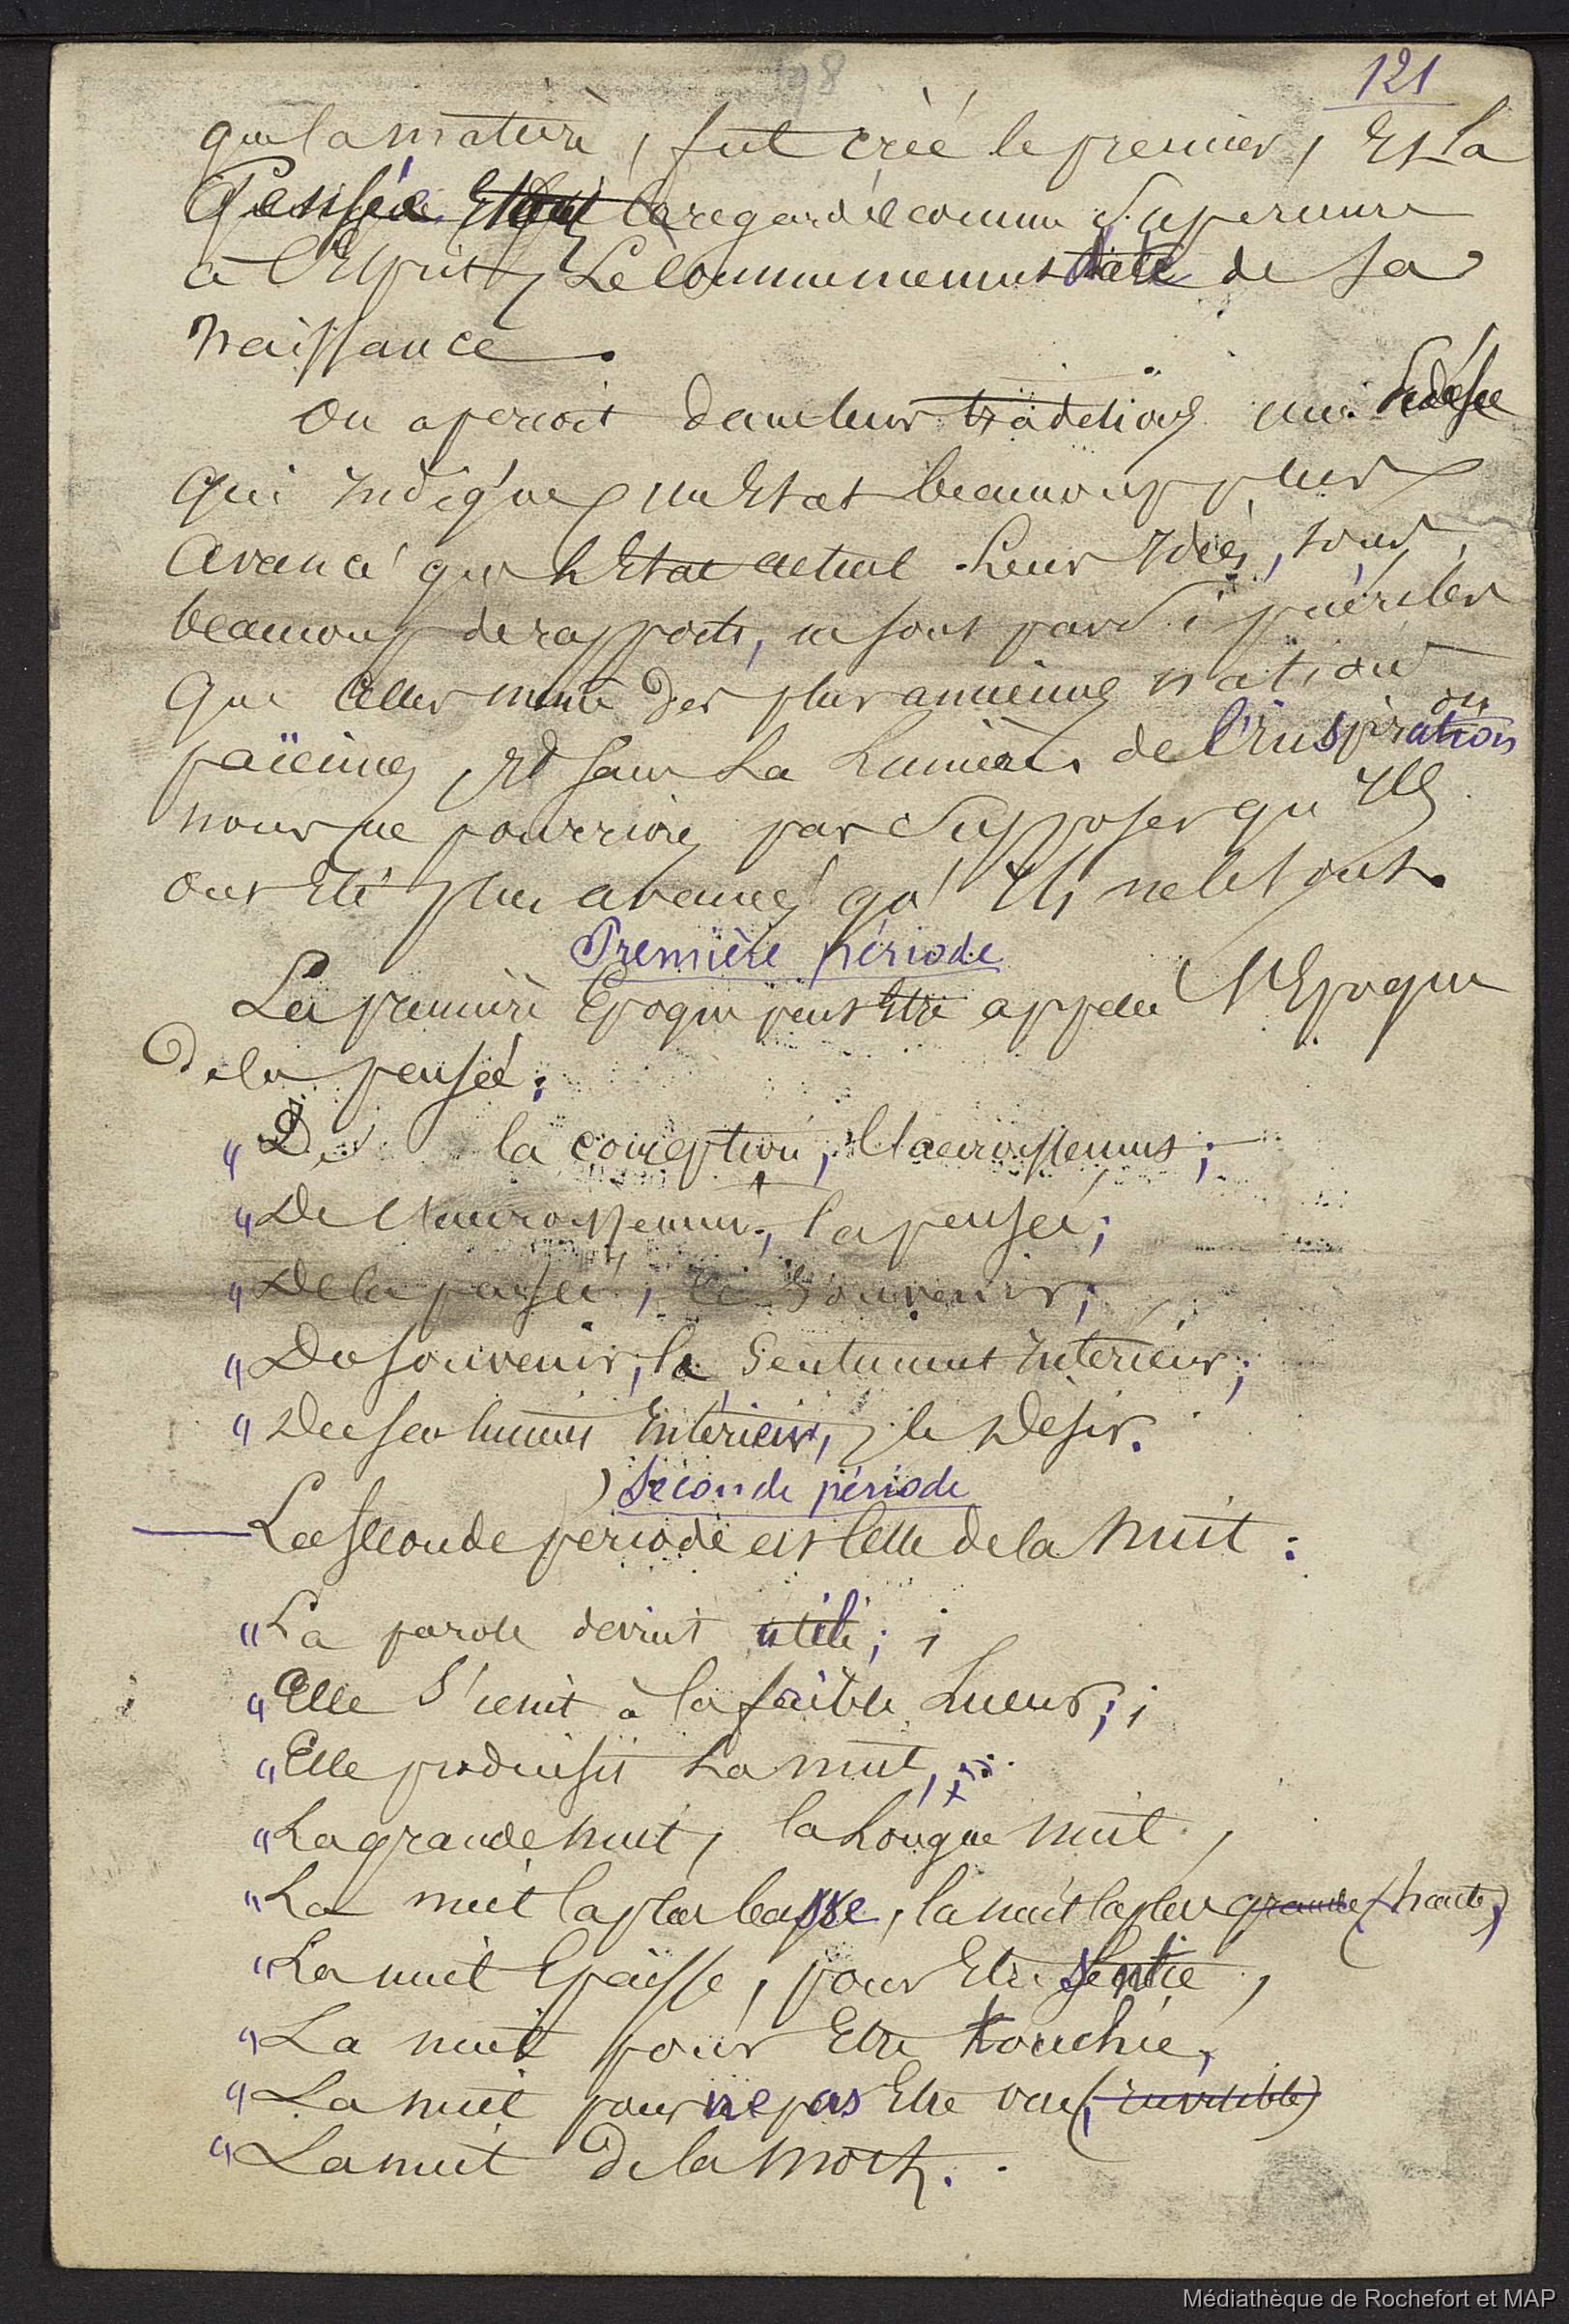 198
121
que la matière, fut créé le premier, Et La
Pensée Etant regardée comme Superieure
à l'Esprit, Le Commencement date de sa
naissance.
On apercoit dans leurs traditions une
qui indique un Etat beaucoup plus
avancé que l'Etat actuel. Leurs Idées, sous
beaucoup de rapports, ne sont pas si puériles
que celles même des plus anciennes nations
païennes, Et sans La Lumière de l'inspiration
ou
nous ne pourrions pas Supposer qu'Ils
ont Eté plus avancés qu'Ils ne le sont.
Première période
La première Epoque peut Etre appelée l'Epoque
de la pensée:
"De la conception, l'accroissement;
"De l'accroissement, la pensée;
"De la pensée, le Souvenir;
"Du souvenir, le Sentiment Intérieur;
"Du sentiment Intérieur, le Désir.
Seconde période
La seconde période est celle de la nuit:
"La parole devint utile;
"Elle s'unit à la faible Lueur;
"Elle produisit La nuit,
"La grande nuit, la Longue nuit,
"La nuit la plus basse, la nuit la plus grande (haute),
"La nuit Epaisse, pour Etre sentie,
"La nuit pour Etre touchée,
"La nuit pour ne pas Etre vue, (invisible)
"La nuit de la mort.
Médiathèque de Rochefort et MAP